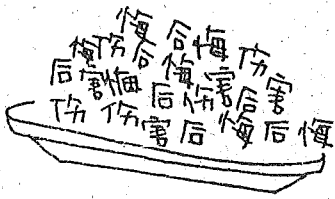 悔后悔伤
悔伤后悔
后害悔后伤害后害
伤伤害后悔后悔